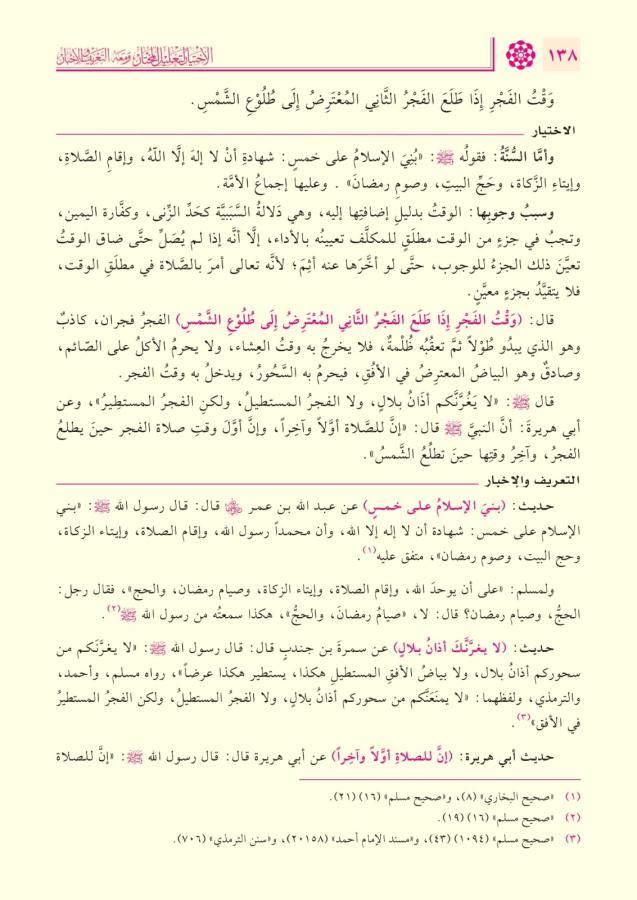 ١٣٨
الاختيار لتعليل المختار ومعه التعريف والإخبار
وَقْتُ الفَجْرِ إِذَا طَلَعَ الفَجْرُ الثَّانِي المُعْتَرِضُ إِلَى طُلُوْعِ الشَّمْسِ.
الاختيار
وأمَّا السُّنَّةُ: فقولُه ﷺ: «بُنِيَ الإسلامُ على خمسٍ: شهادةِ أنْ لا إلهَ إلَّا اللّهُ، وإقامِ الصَّلاةِ،
وإيتاءِ الزَّكاة، وحَجِّ البيتِ، وصومِ رمضانَ» . وعليها إجماعُ الأمَّة.
وسببُ وجوبِها: الوقتُ بدليلِ إضافتِها إليه، وهي دَلالةُ السَّبَبيَّة كحَدِّ الزِّنى، وكفَّارة اليمين،
وتجبُ في جزءٍ من الوقت مطلَقٍ للمكلَّف تعيينُه بالأداء، إلَّا أنَّه إذا لم يُصَلِّ حتَّى ضاق الوقتُ
تعيَّنَ ذلك الجزءُ للوجوب، حتَّى لو أخَّرَها عنه أثِمَ؛ لأنَّه تعالى أمرَ بالصَّلاة في مطلَقِ الوقت،
فلا يتقيَّدُ بجزءٍ معيَّنٍ.
قال: (وَقْتُ الفَجْرِ إِذَا طَلَعَ الفَجْرُ الثَّانِي المُعْتَرِضُ إِلَى طُلُوْعِ الشَّمْسِ) الفجرُ فجران، كاذبٌ
وهو الذي يبدُو طُوْلاً ثمَّ تعقُبُه ظُلْمةٌ، فلا يخرجُ به وقتُ العِشاء، ولا يحرمُ الأكلُ على الصَّائم،
وصادقٌ وهو البياضُ المعترِضُ في الأفُقِ، فيحرمُ به السَّحُورُ، ويدخلُ به وقتُ الفجر.
قال ﷺ: «لا يَغُرَّنَّكم أذَانُ بلالٍ، ولا الفجرُ المستطيلُ، ولكنِ الفجرُ المستطِيرُ»، وعن
أبي هريرةَ: أنَّ النبيَّ ﷺ قال: «إنَّ للصَّلاة أوَّلاً وآخِراً، وإنَّ أوَّلَ وقتِ صلاة الفجر حينَ يطلعُ
الفجرُ، وآخِرُ وقتِها حينَ تطلُعُ الشَّمسُ».
التعريف والإخبار
حديث: (بنيَ الإسلامُ على خمسٍ) عن عبد الله بن عمر ﵁ قال: قال رسول الله ﷺ: «بني
الإسلام على خمس: شهادة أن لا إله إلا الله، وأن محمداً رسول الله، وإقام الصلاة، وإيتاء الزكاة،
وحج البيت، وصوم رمضان»، متفق عليه(١).
ولمسلم: «على أن يوحدَ الله، وإقام الصلاة، وإيتاء الزكاة، وصيام رمضان، والحج»، فقال رجل:
الحجُّ، وصيام رمضان؟ قال: لا، «صيامُ رمضانَ، والحجُّ»، هكذا سمعتُه من رسول الله ﷺ(٢).
حديث: (لا يغرَّنَّكَ أذانُ بلالٍ) عن سمرةَ بن جندبٍ قال: قال رسول الله ﷺ: «لا يغرَّنَكم من
سحوركم أذانُ بلال، ولا بياضُ الأفقِ المستطيلِ هكذا، يستطير هكذا عرضاً»، رواه مسلم، وأحمد،
والترمذي، ولفظهما: «لا يمنَعَنَّكم من سحوركم أذانُ بلالٍ، ولا الفجرُ المستطيلُ، ولكن الفجرُ المستطيرُ
في الأفق»(٣).
حديث أبي هريرة: (إنَّ للصلاةِ أوَّلاً وآخِراً) عن أبي هريرة قال: قال رسول الله ﷺ: «إنَّ للصلاة
(١) «صحيح البخاري» (٨)، و«صحيح مسلم» (١٦) (٢١).
(٢) «صحيح مسلم» (١٦) (١٩).
(٣) «صحيح مسلم» (١٠٩٤) (٤٣)، و«مسند الإمام أحمد» (٢٠١٥٨)، و«سنن الترمذي» (٧٠٦).